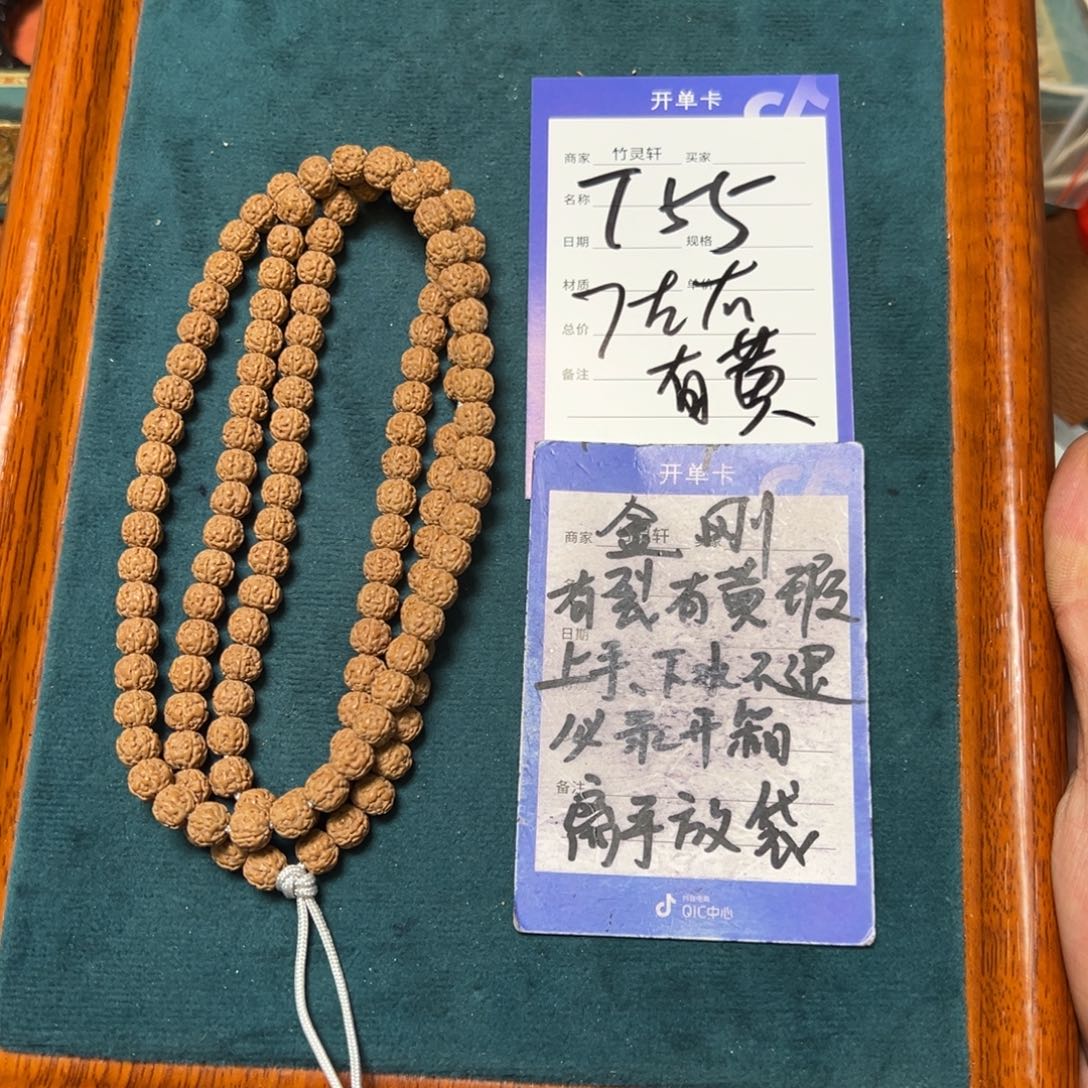 开单卡
商家 竹灵轩 买家
名称 T55
日期 规格
材质 单价
7左右
总价
有黄
备注
开单卡
商家 轩 买家
金刚
有裂有黄瑕
日期
上手、下水不退
必录开箱
备注
离手放袋
抖音电商
QIC中心